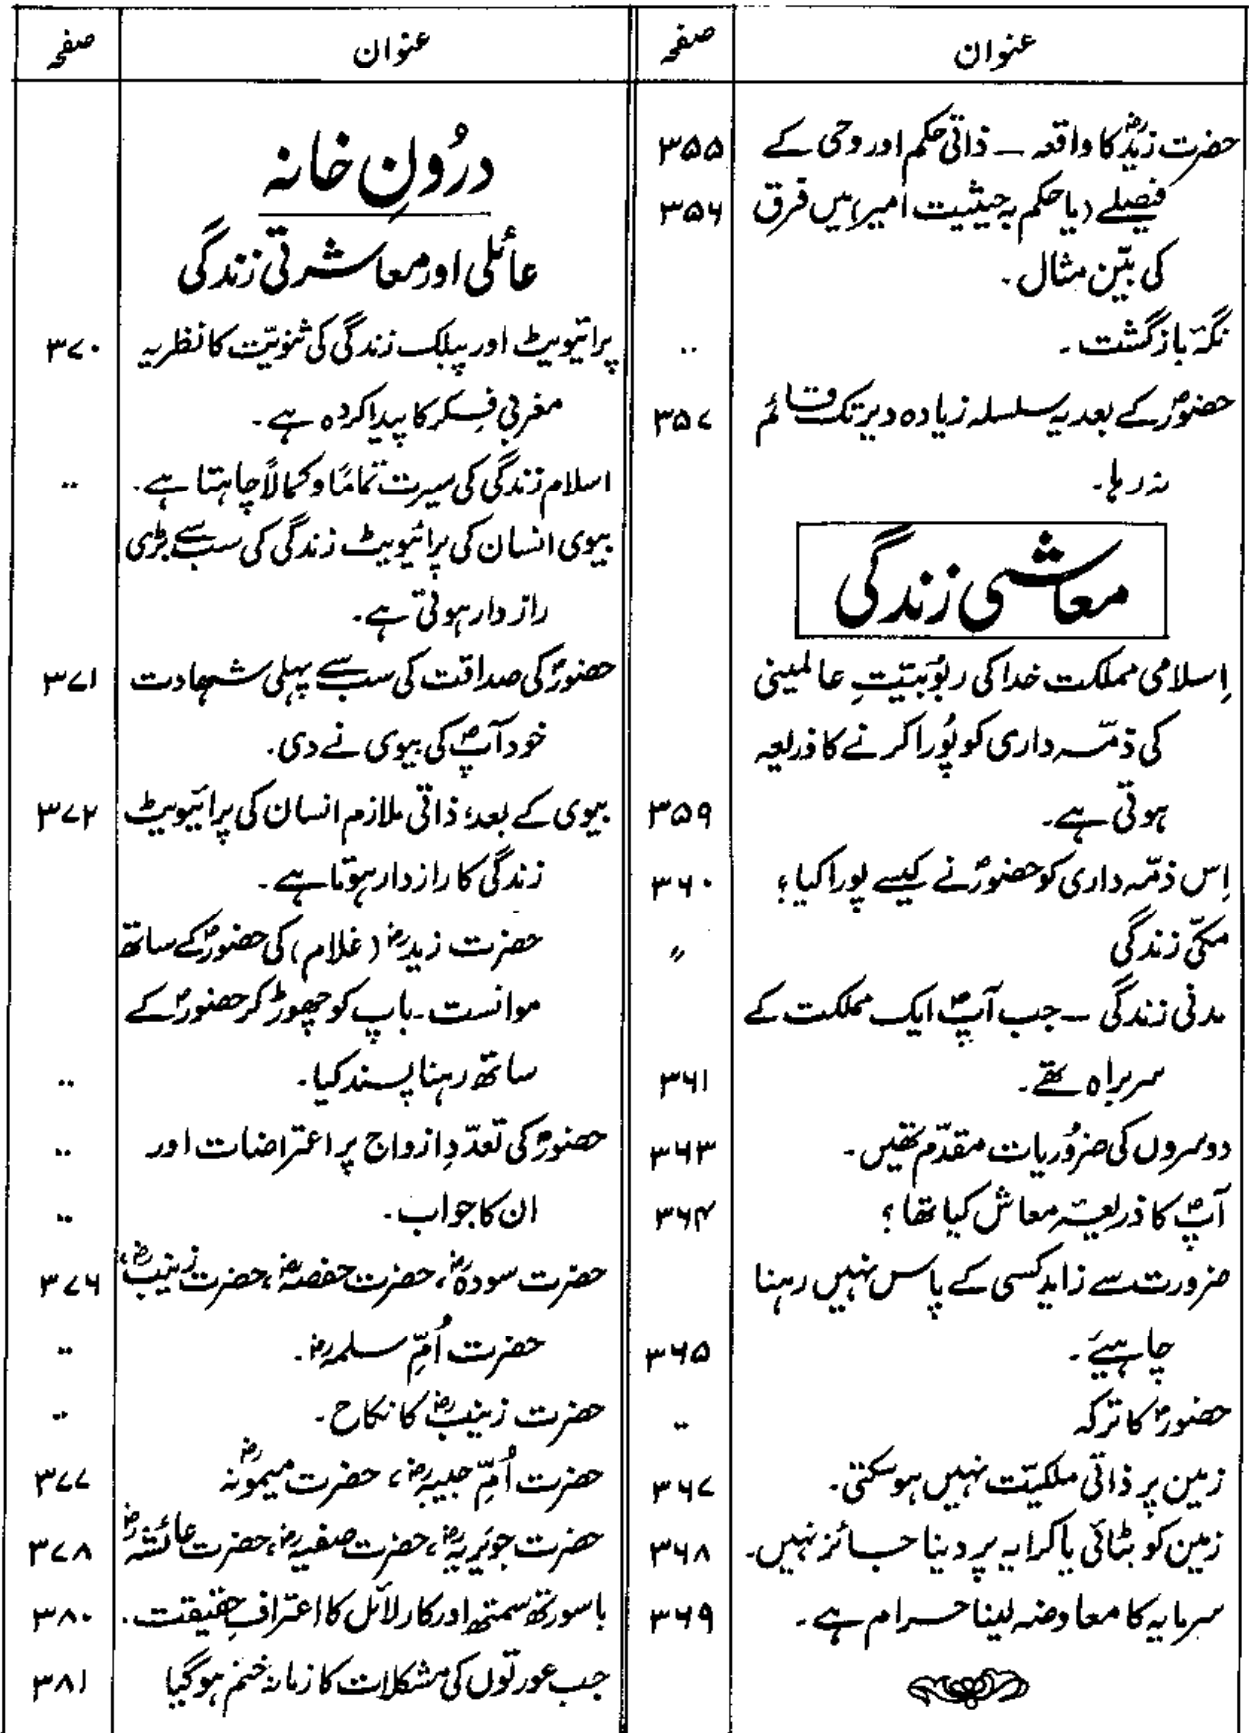 عنوان صفحہ
حضرت زیدؓ کا واقعہ ــ ذاتی حکم اور وحی کے ۳۵۵
فیصلے (یا حکم بہ حیثیت امیر) میں فرق ۳۵۶
کی بیّن مثال۔
نگہِ بازگشت۔ ..
حضورؐ کے بعد یہ سلسلہ زیادہ دیر تک قائم ۳۵۷
نہ رہا۔
معاشی زندگی
اِسلامی مملکت خدا کی ربوُبیّتِ عالمینی
کی ذمّہ داری کو پُورا کرنے کا ذریعہ
ہوتی ہے۔ ۳۵۹
اِس ذمّہ داری کو حضورؐ نے کیسے پورا کیا؟ ۳۶۰
مکّی زندگی 〃
مدنی زندگی ــ جب آپؐ ایک مملکت کے
سربراہ تھے۔ ۳۶۱
دوسروں کی ضرُوریات مقدّم تھیں۔ ۳۶۳
آپؐ کا ذریعۂ معاش کیا تھا؟ ۳۶۴
ضرورت سے زاید کسی کے پاس نہیں رہنا
چاہیئے۔ ۳۶۵
حضورؐ کا ترکہ ..
زمین پر ذاتی ملکیّت نہیں ہوسکتی۔ ۳۶۷
زمین کو بٹائی یا کرایہ پر دینا جائز نہیں۔ ۳۶۸
سرمایہ کا معاوضہ لینا حرام ہے۔ ۳۶۹
عنوان صفحہ
درُونِ خانہ
عائلی اور معاشرتی زندگی
پرائیویٹ اور پبلک زندگی کی ثنویّت کا نظریہ ۳۷۰
مغربی فکر کا پیدا کردہ ہے۔
اسلام زندگی کی سیرت تماماً و کمالاً چاہتا ہے۔ ..
بیوی انسان کی پرائیویٹ زندگی کی سب سے بڑی
رازدار ہوتی ہے۔
حضورؐ کی صداقت کی سب سے پہلی شہادت ۳۷۱
خود آپؐ کی بیوی نے دی۔
بیوی کے بعد، ذاتی ملازم انسان کی پرائیویٹ ۳۷۲
زندگی کا رازدار ہوتا ہے۔
حضرت زیدؓ (غلام) کی حضورؐ کے ساتھ
موانست۔ باپ کو چھوڑ کر حضورؐ کے
ساتھ رہنا پسند کیا۔ ..
حضورؐ کی تعدّدِ ازواج پر اعتراضات اور ..
ان کا جواب۔ ..
حضرت سودہؓ، حضرت حفصہؓ، حضرت زینبؓ، ۳۷۶
حضرت اُمِّ سلمہؓ۔ ..
حضرت زینبؓ کا نکاح۔ ..
حضرت اُمِّ حبیبہؓ، حضرت میمونہؓ ۳۷۷
حضرت جویریہؓ، حضرت صفیہؓ، حضرت عائشہؓ ۳۷۸
باسورتھ سمتھ اور کارلائل کا اعترافِ حقیقت۔ ۳۸۰
جب عورتوں کی مشکلات کا زمانہ ختم ہوگیا ۳۸۱